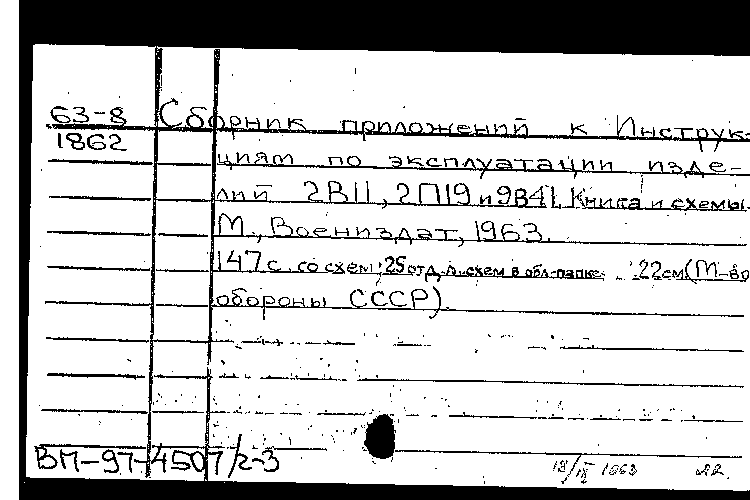 63-8 Сборник приложений к Инструк-
1862 циям по эксплуатации изде-
лий 2В11, 2П19 и 9В41. Книга и схемы.
М., Воениздат, 1963.
147 с. со схем; 25 отд. л. схем в обл.-папке. 22 см (М-во
обороны СССР).
ВМ-97-4507/2-3
18/IX 1963 22.